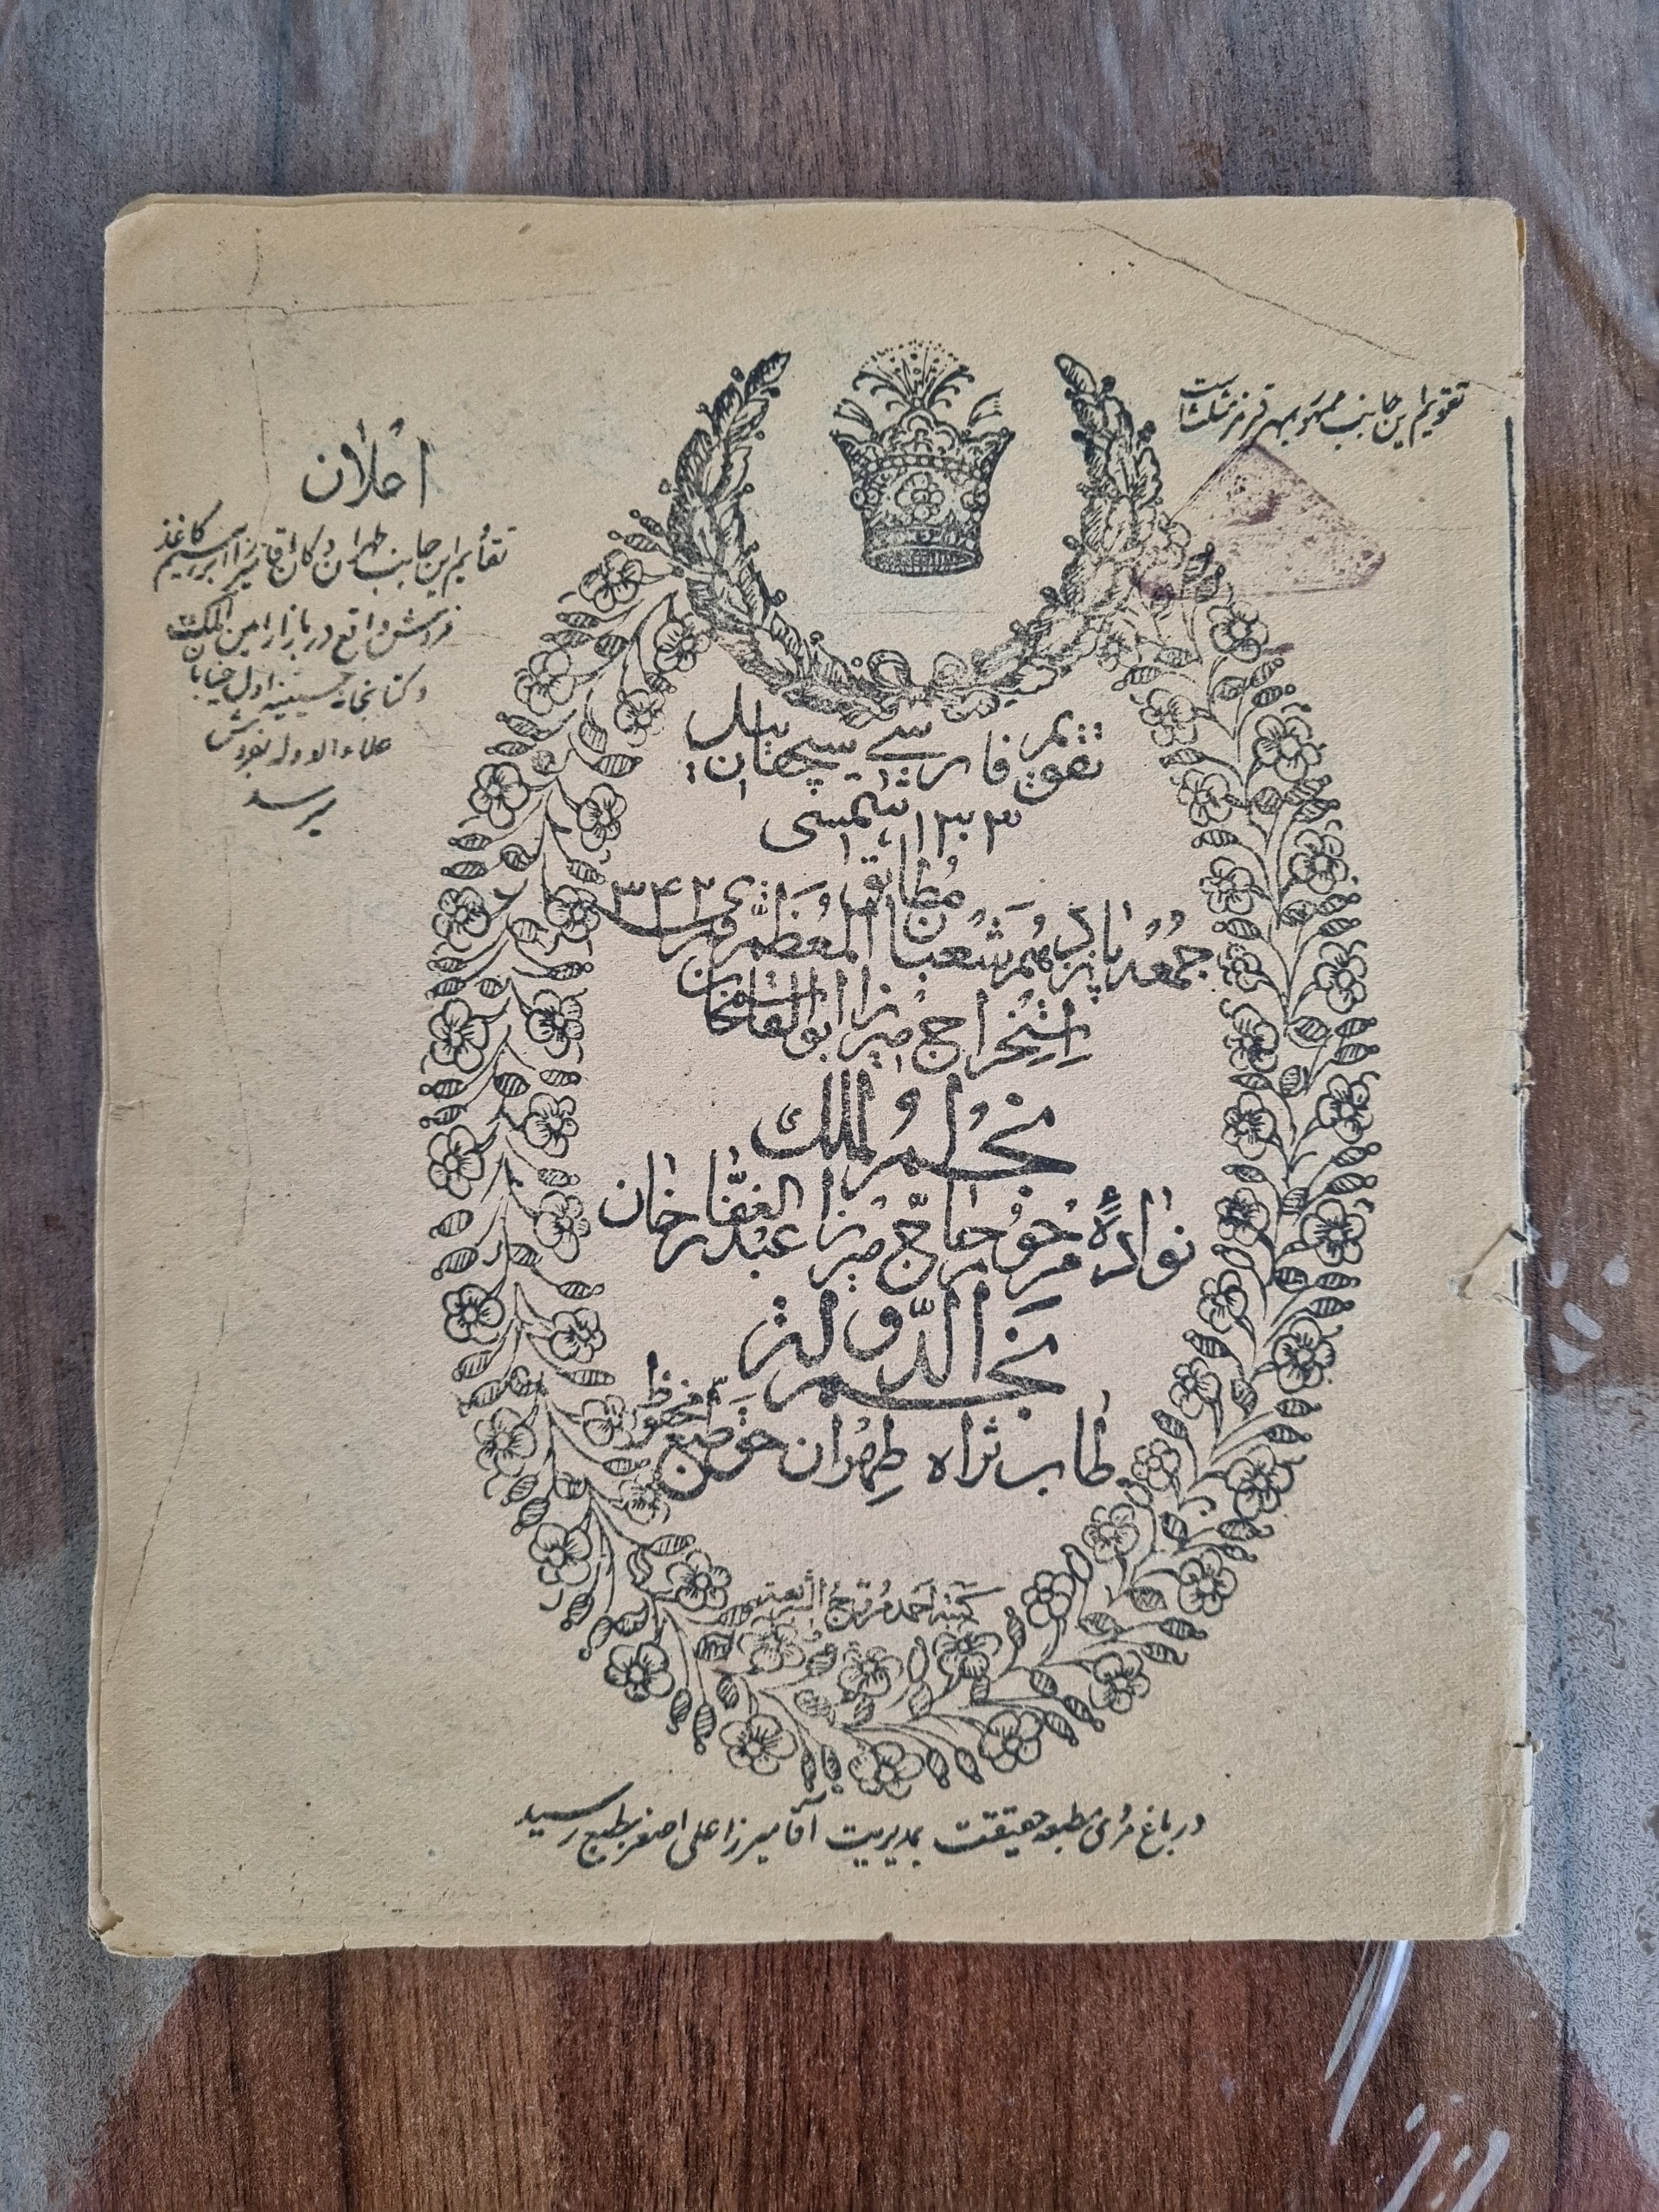 تقویم اینجانب ممهور بمهر قرمز مثلث است
اعلان
تقاویم اینجانب طهران دکان آقا میرزا ابراهیم کاغذ
فروش واقع در بازار امین الملک
و کتابخانه حسینیه اول خیابان
علاءالدوله بفروش
میرسد
تقویم فارسی سیچقان ئیل
۱۳۰۳ شمسی
مطابق
جمعه پانزدهم شعبان المعظم قمری ۱۳۴۲
استخراج میرزا ابوالقاسم خان
نجم الملک
نوادهٔ مرحوم حاج میرزا عبدالغفار خان
نجم الدوله
طاب ثراه طهران حق طبع محفوظ
کتبه احمد مروج الشریعه
در باغ مروی مطبعه حقیقت بمدیریت آقا میرزا علی اصغر بطبع رسید